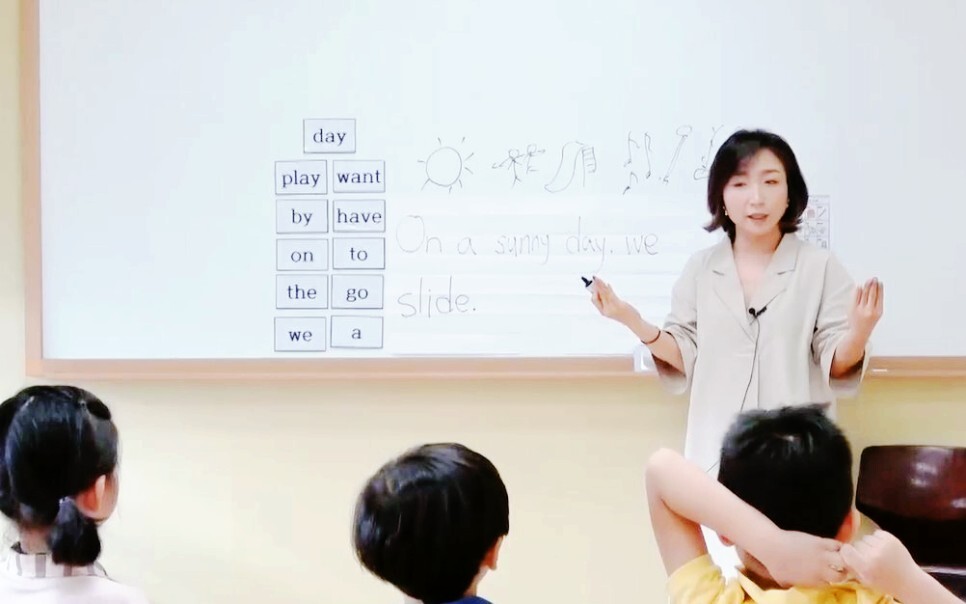 day
play want
by have
on to
the go
we a
On a sunny day, we
slide.